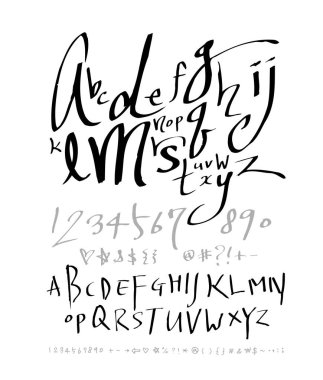 Abcdefghij
klmnopqrstuvwxyz
1234567 890
@#?!+-
ABCDEFGHIJKLMN
OPQRSTUVWXYZ
1234567890